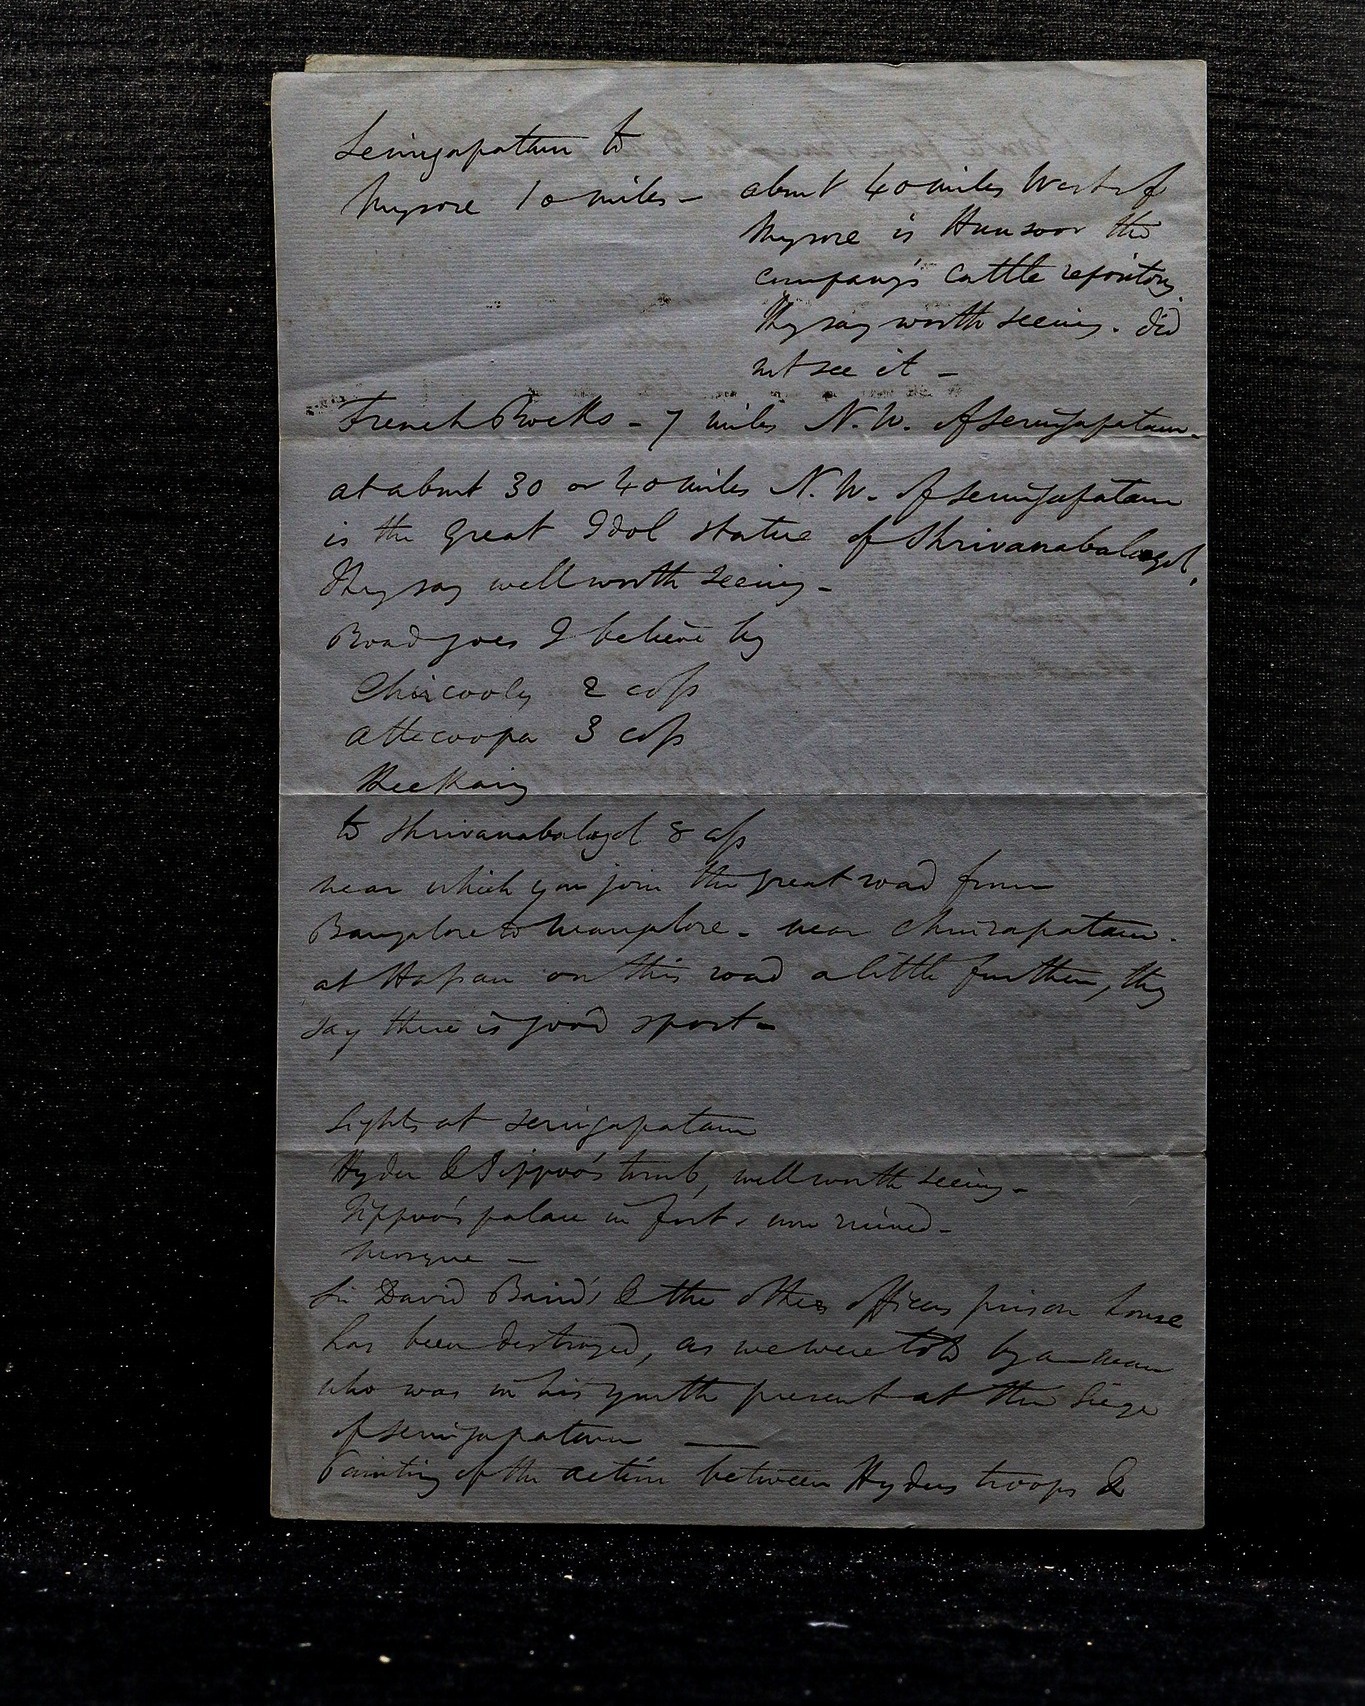 Seringapatam to
Mysore 10 miles – about 40 miles West of
Mysore is Hunsoor the
company's cattle repository.
They say worth seeing. did
not see it –
French Rocks – 7 miles N.W. of Seringapatam –
at about 30 or 40 miles N.W. of Seringapatam
is the great Idol statue of Shrivanabalagol,
They say well worth seeing –
Road goes I believe by
Chircooly 2 coss
Attecoopa 3 coss

to Shrivanabalagol 8 coss
near which you join the great road from
Bangalore to Mangalore – near Chinrapatam.
at Hassan on this road a little further, they
say there is good sport –
Sights at Seringapatam
Hyder & Tippoo's tomb, well worth seeing –
Tippoo's palace in fort, now ruined –
Mosque –
Sir David Baird's & the other officers prison house
has been destroyed, as we were told by a man
who was in his youth present at the Siege
of Seringapatam —
Painting of the action between Hyders troops &